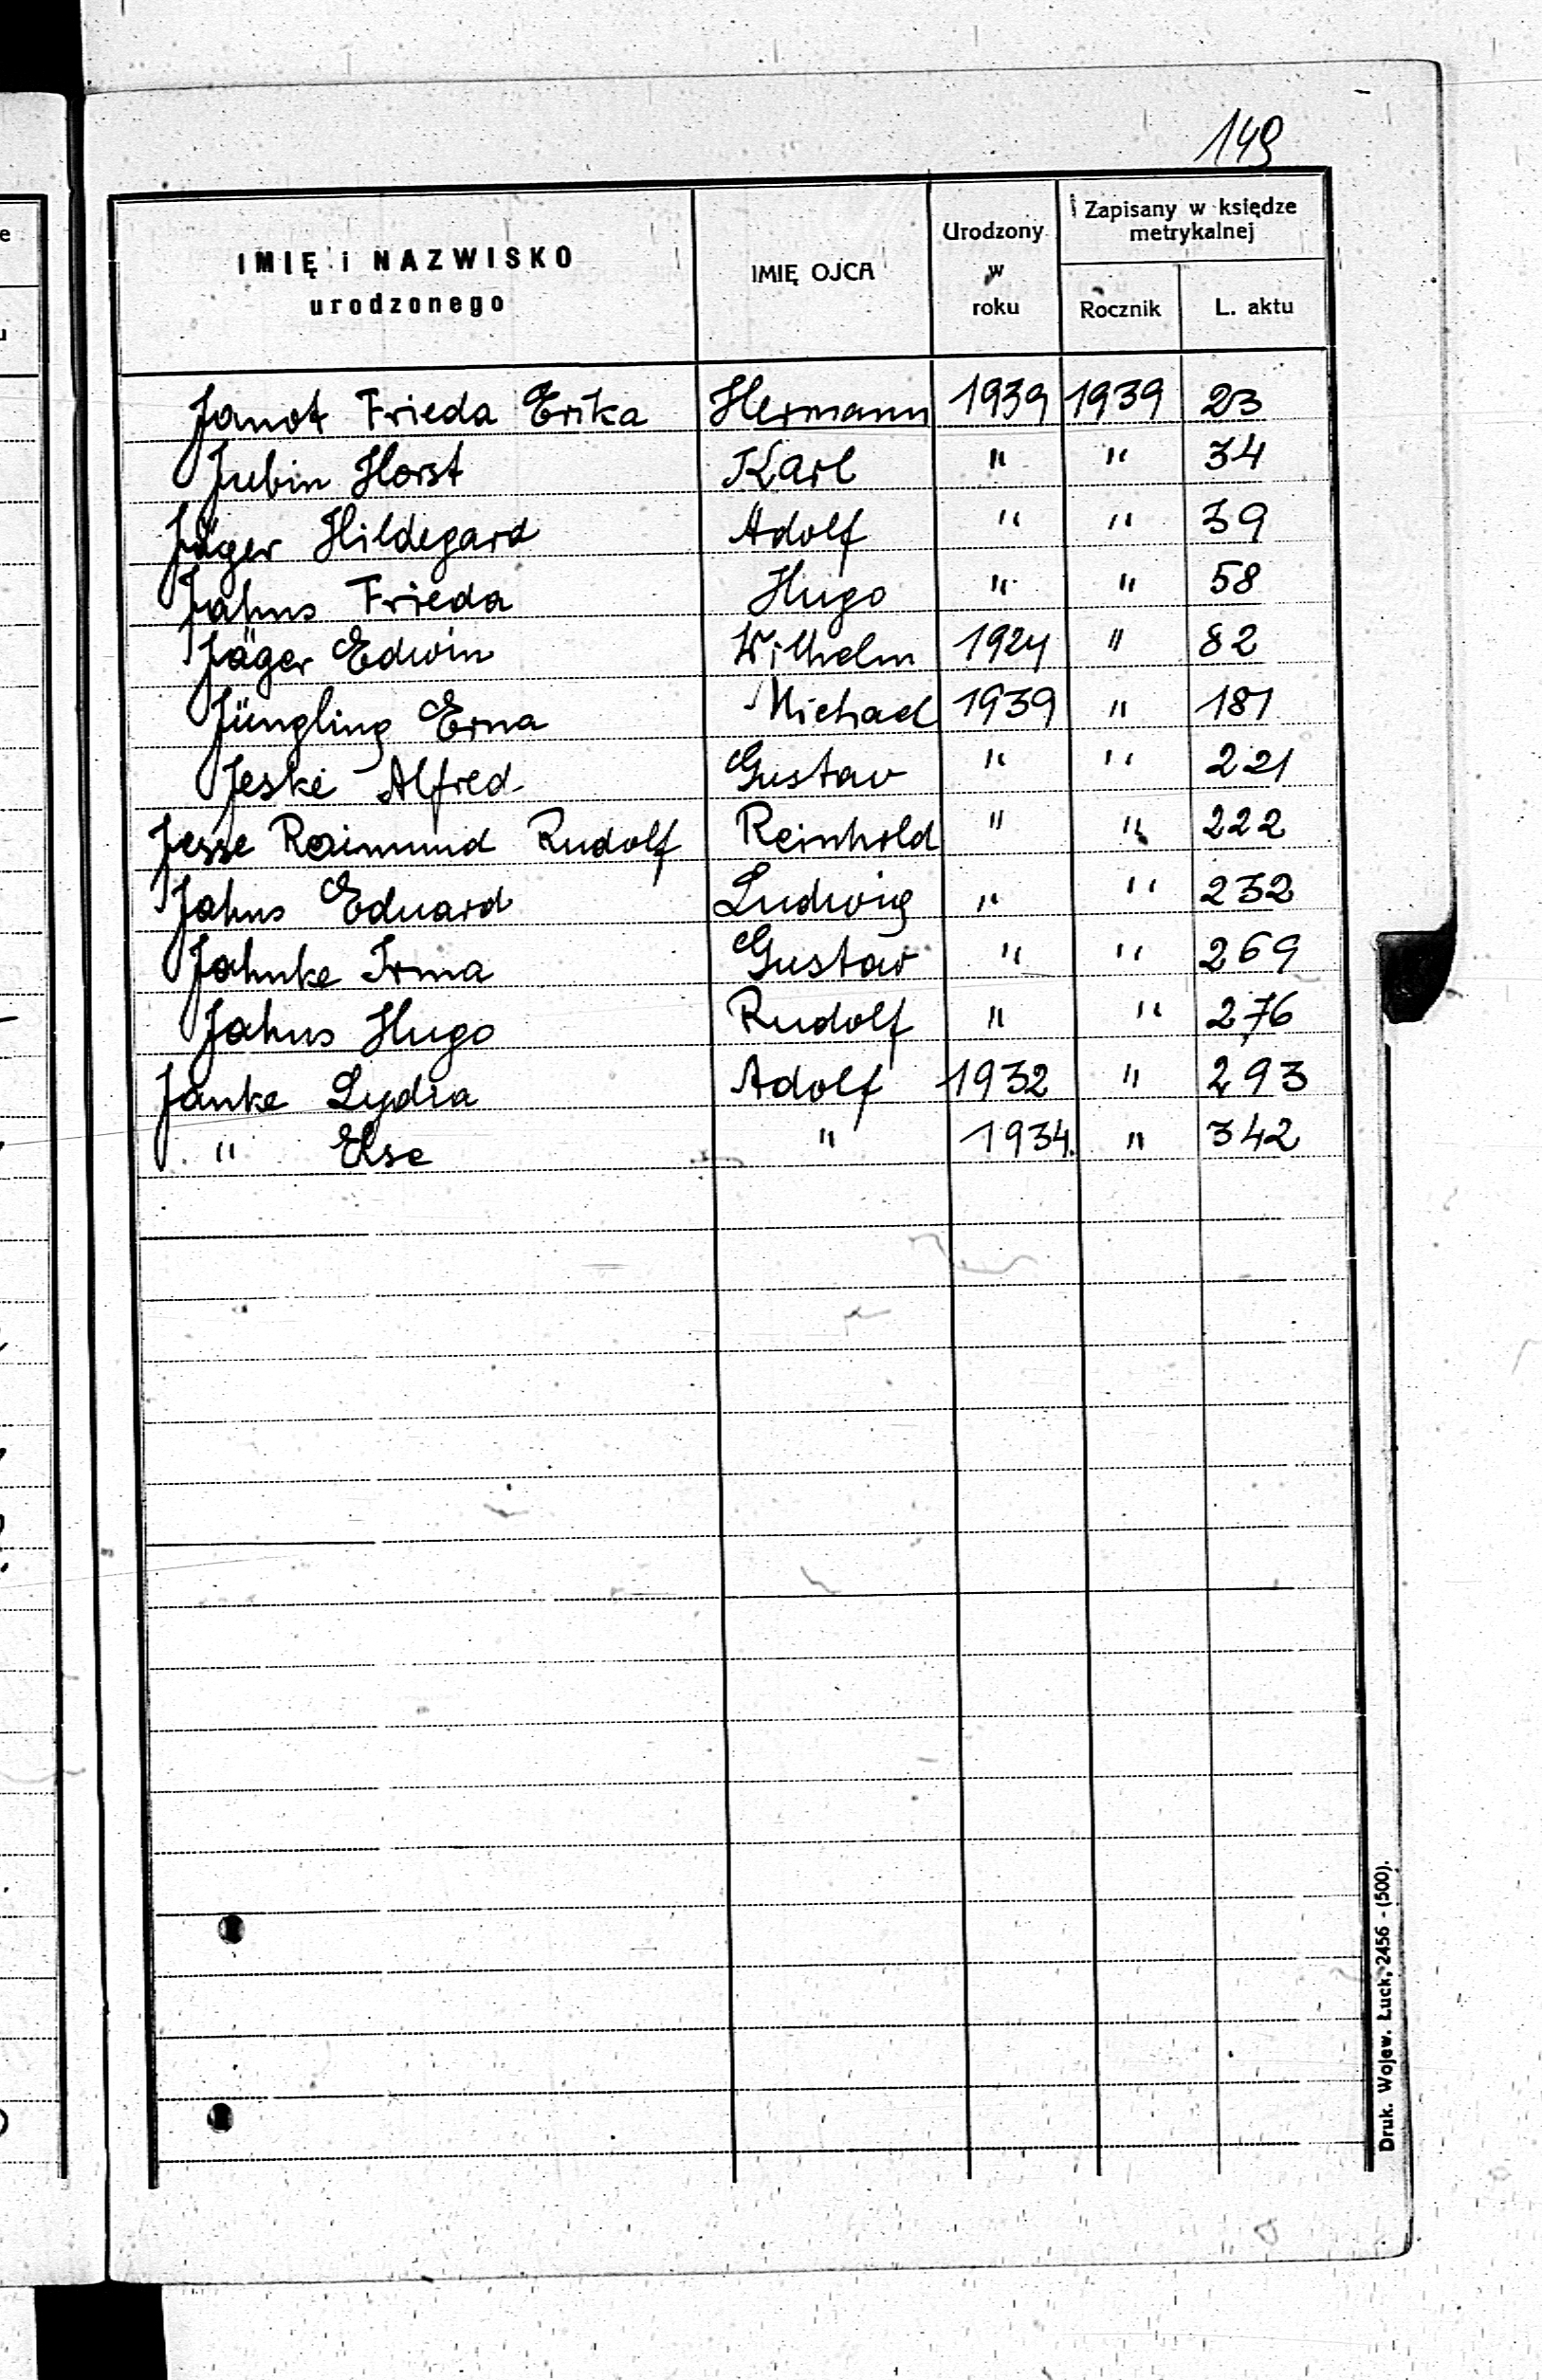 149
IMIĘ i NAZWISKO
urodzonego
IMIĘ OJCA
Urodzony
w
roku
Zapisany w księdze
metrykalnej
Rocznik
L. aktu
Janot Frieda Erika Hermann 1939 1939 23
Jubin Horst Karl " " 34
Jäger Hildegard Adolf " " 39
Jahns Frieda Hugo " " 58
Jäger Edwin Wilhelm 1924 " 82
Jüngling Erna Michael 1939 " 181
Jeske Alfred Gustav " " 221
Jesse Raimund Rudolf Reinhold " " 222
Jahns Eduard Ludwig " " 232
Jahnke Irma Gustav " " 269
Jahns Hugo Rudolf " " 276
Janke Lydia Adolf 1932 " 293
" Else " 1934. " 342
Druk. Wojew. Łuck, 2456 - (500).